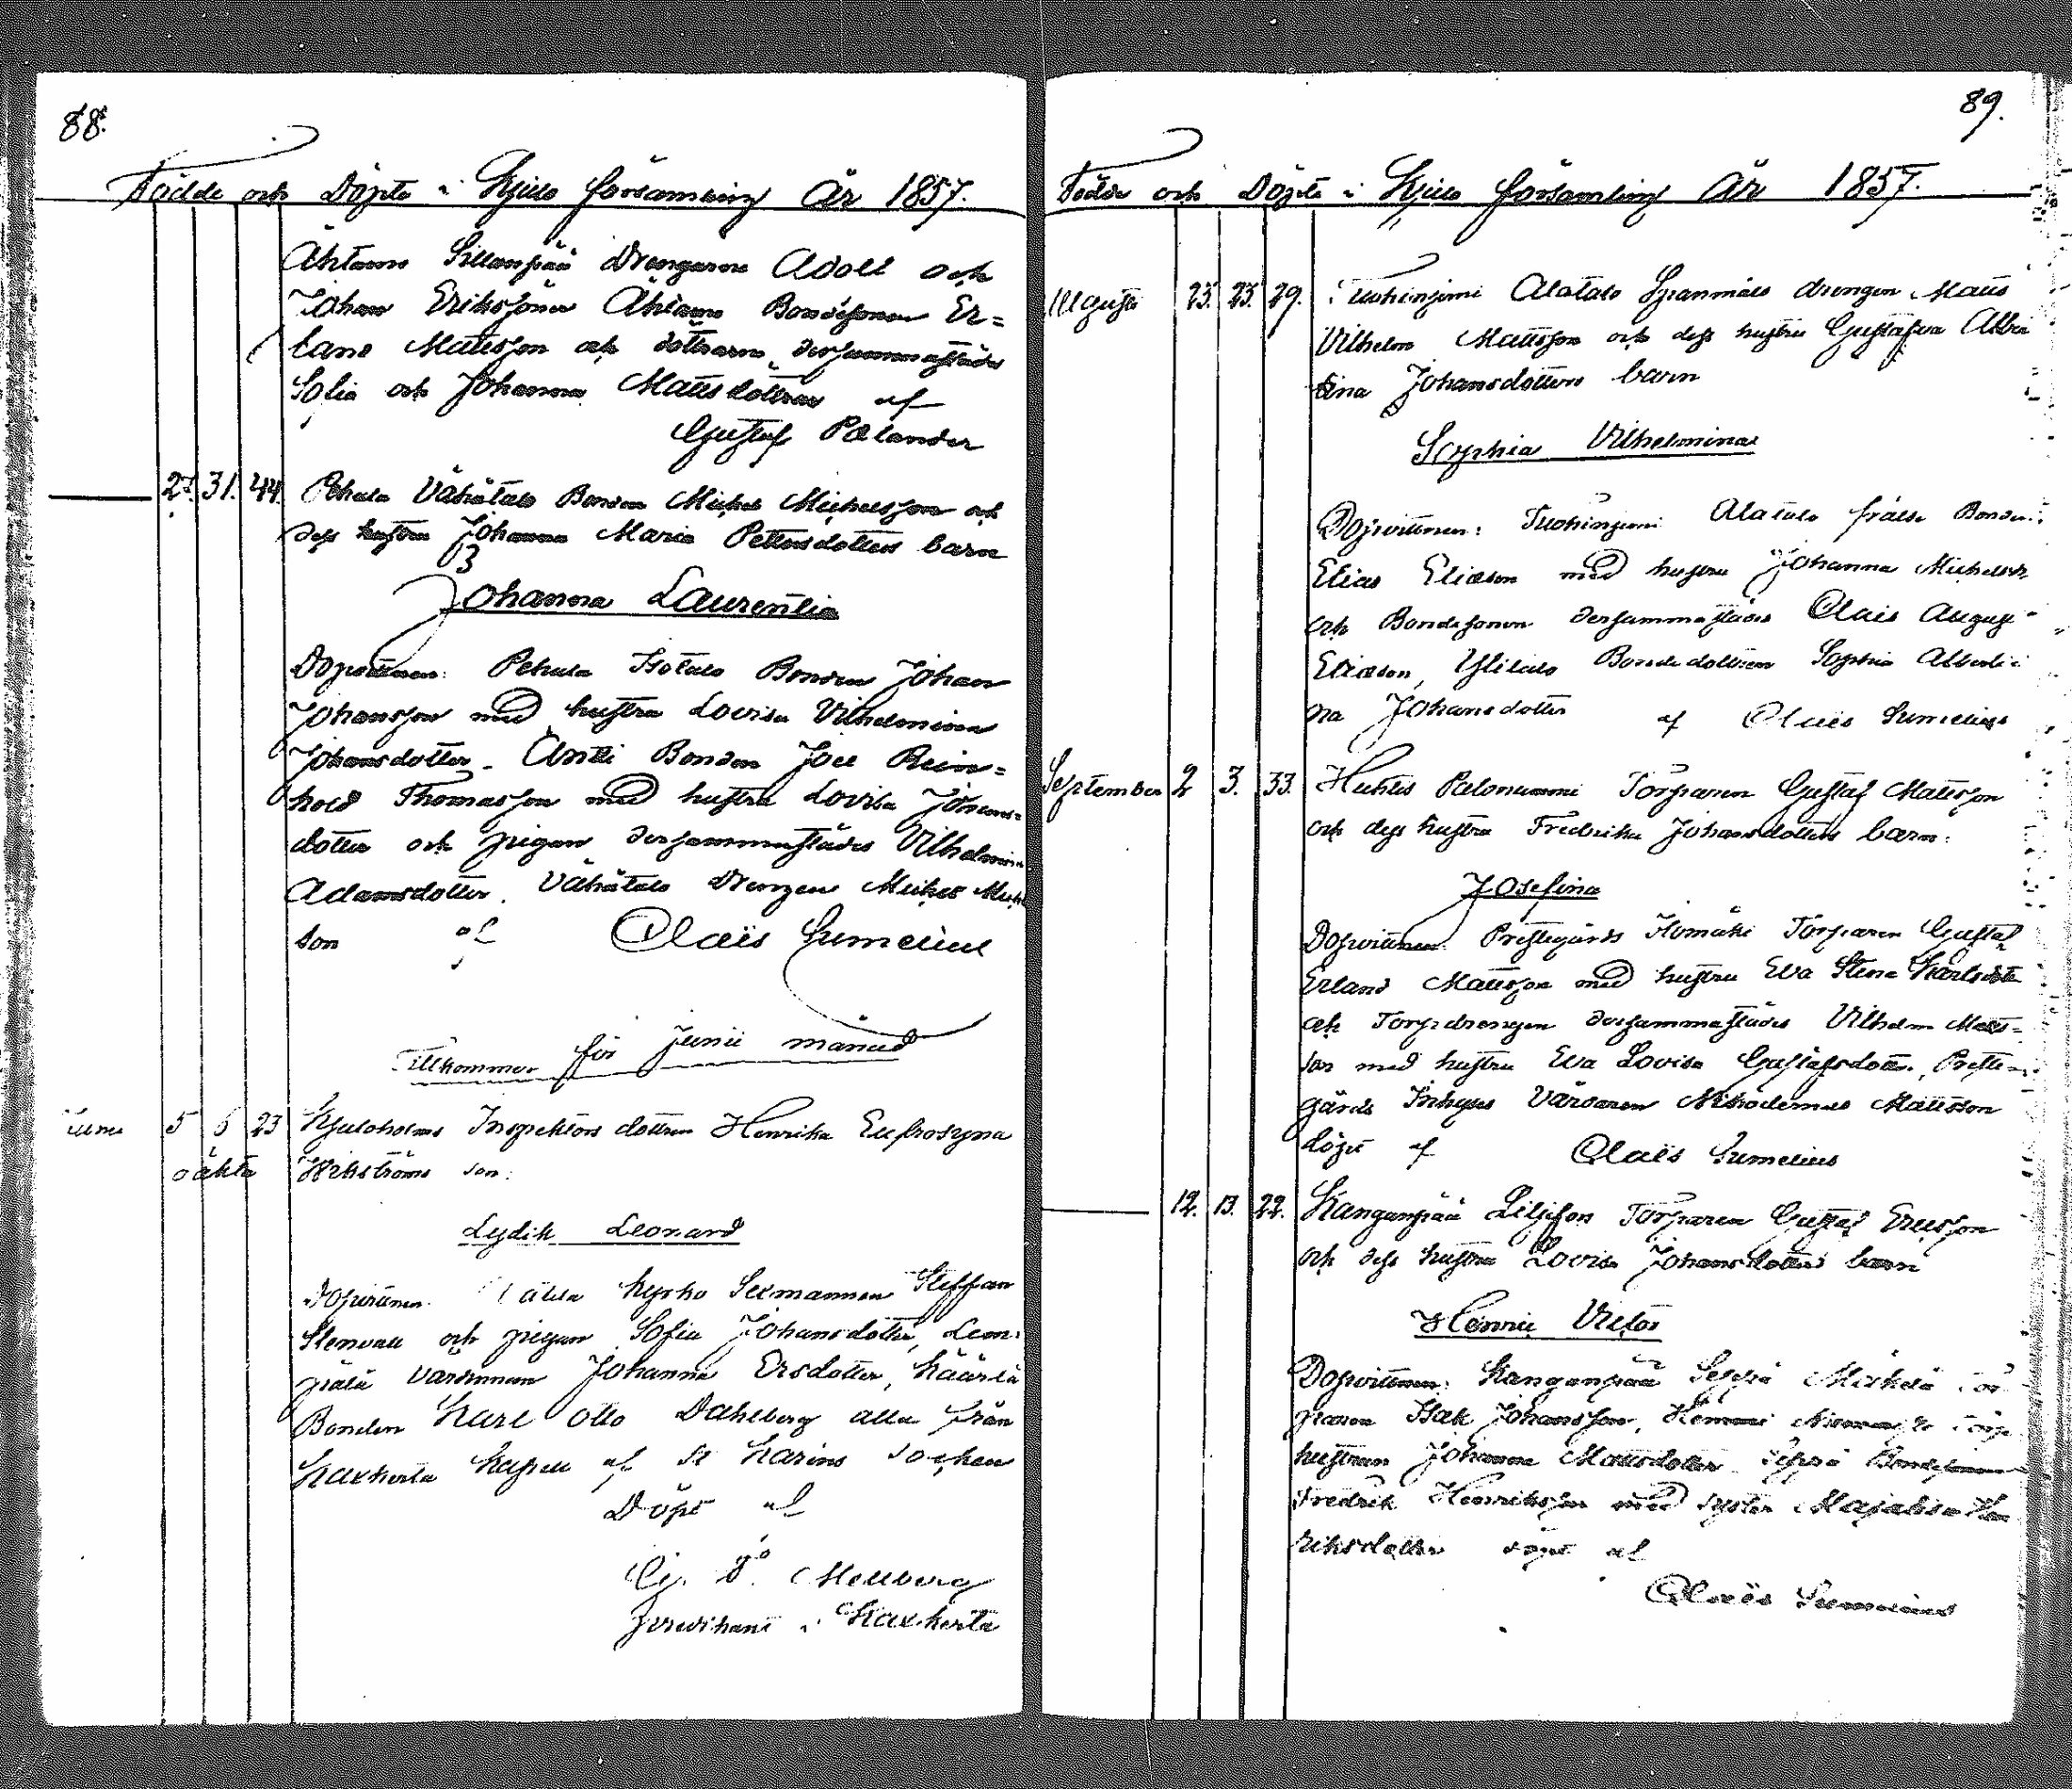 88.
Födde och Döpte i Kjulo församling År 1857.
Ähtamo Sillanpää Drengarne Adolf och
Johan Eriksöner Ähtamo Bondesonen Er=
land Mattsson och döttrarne dersammastädes
Sofia och Johanna Mattsdöttrar af
Gustaf Pælander
27. 31. 44. Pehula Vähätalo Bonden Michel Michelsson och
dess hustru Johanna Maria Pettersdotters barn
Johanna Laurentia
Dopvittnen: Pehula Isotalo Bonden Johan
Johansson med hustru Lovisa Vilhelmina
Johansdotter. Antti Bonden Joel Rein=
hold Thomasson med hustru Lovisa Johans=
dotter och pigan dersammastädes Vilhelmina
Adamsdotter. Vähätalo Drengen Michel Mich
son af Claës Sumelius
Tillkommer för Junii månad
Juni 5 6 23 Kjuloholms Inspektors dottren Henrika Eufrosyna
oäkta Wikströms son:
Lydik Leonard
Dopvittnen: kyrko Sexmannen Steffan
Stenvall och pigan Sofia Johansdotter, Lem=
pälä Johanna Ersdotter, Käärlä
Bonden Karl Otto Dahlberg alla från
Kaxkerta Kapell af St Karins Socken
Döpt af
G. Mellberg
predikant i Kaxkerta
89.
Födde och Döpte i Kjulo församling År 1857.
Augusti 23. 23. 29. Tuohiniemi Alatalo Spanmåls drengen Matts
Vilhelm Mattsson och dess hustru Gustafva Albertina
Johansdotters barn
Sophia Vilhelmina
Dopvittnen: Tuohiniemi Alatalo frälse Bonden
Elias Eliasson med hustru Johanna Michelsdr
och Bondesonen dersammastädes Claës August
Eliasson, Ylitalo Bondedottren Sophia Alberti
na Johansdotter af Claës Sumelius
September 2 3. 33. Huhtis Palonummi Torparen Gustaf Mattsson
och dess hustru Fredrika Johansdotters barn:
Josefina
Dopvittnen: Prestegårds Torparen Gustaf
Erland Mattsson med hustru Eva Stina Karlsdotter
och Torpdrengen dersammastädes Vilhelm Matts=
son med hustru Eva Lovisa Gustafsdotter, Preste=
gårds Inhyses Nikodemus Mattsson
döpt af Claës Sumelius
12. 13. 22. Kanganpää Liljefors Torparen Gustaf Ericsson
och dess hustru Lovisa Johansdotters barn
Henric Victor
Dopvittnen: Kanganpää Seppä Mäkelä Tor
paren Isak Johansson, Torp
hustrun Johanna Mattsdotter Seppä Bondesonen
Fredrik Henriksson med syster Majalisa Hen
riksdotter döpt af
Claës Sumelius